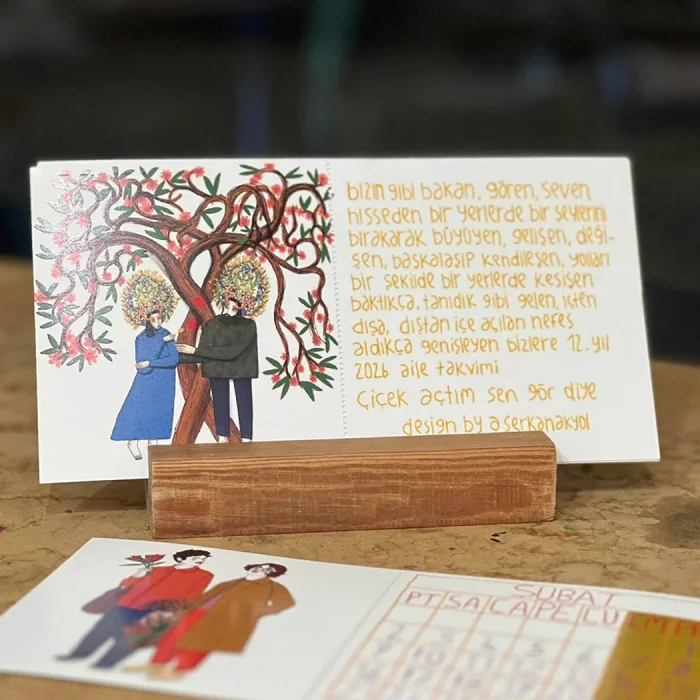 bizim gibi bakan, gören, seven
hisseden bir yerlerde bir şeylerini
bırakarak büyüyen, gelişen, deği-
şen, başkalaşıp kendileşen, yolları
bir şekilde bir yerlerde kesişen
baktıkça, tanıdık gibi gelen, içten
dışa, dıştan içe açılan nefes
aldıkça genişleyen bizlere 12. yıl
2026 aile takvimi
Çiçek açtım sen gör diye
design by a serkanakyol
ŞUBAT
PT SA ÇA PE CU